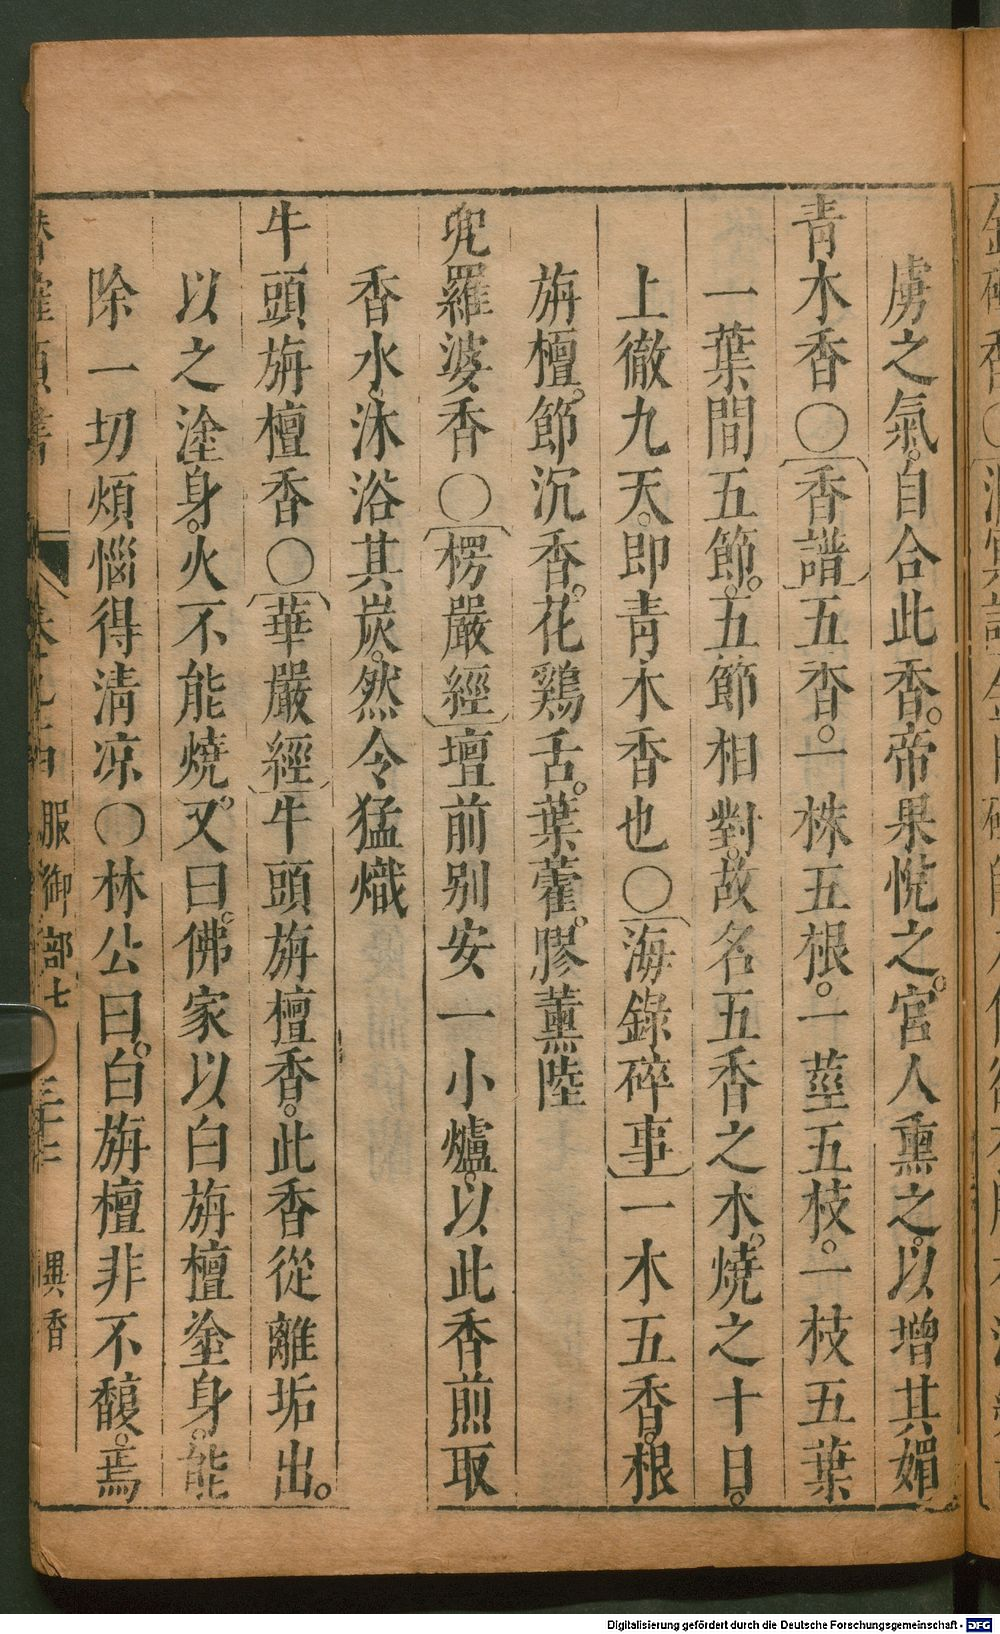 虜之氣。自合此香。帝果悅之。宮人熏之。以增其媚
青木香〇〔香譜〕五香。一株五根。一莖五枝。一枝五葉
一葉間五節。五節相對。故名五香之木。燒之十日。
上徹九天。即青木香也〇〔海錄碎事〕一木五香。根
旃檀。節沉香。花鷄舌。葉藿。膠薰陸
兜羅婆香〇〔楞嚴經〕壇前别安一小爐。以此香煎取
香水。沐浴其炭。然令猛熾
牛頭旃檀香〇〔華嚴經〕牛頭旃檀香。此香從離垢出。
以之塗身。火不能燒。又曰。佛家以白旃檀塗身。能
除一切煩惱得清凉〇林公曰。白旃檀非不馥。焉
服御部七 異香
Digitalisierung gefördert durch die Deutsche Forschungsgemeinschaft - DFG